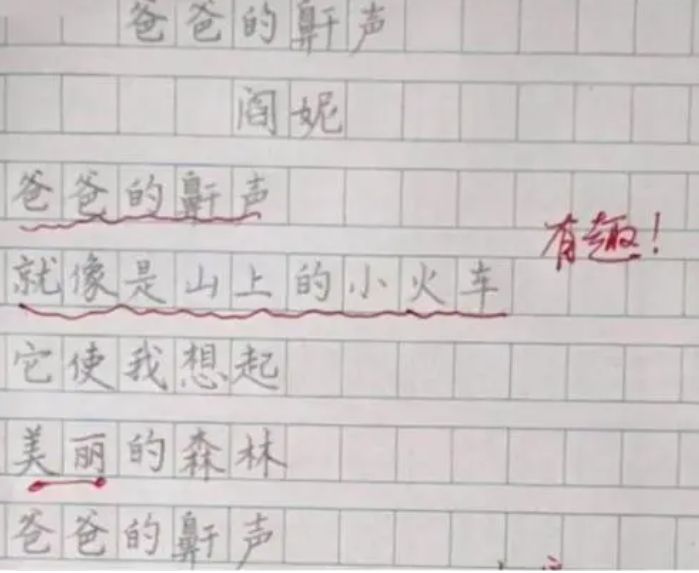 爸爸的鼾声
阎妮
爸爸的鼾声
有趣！
就像是山上的小火车
它使我想起
美丽的森林
爸爸的鼾声